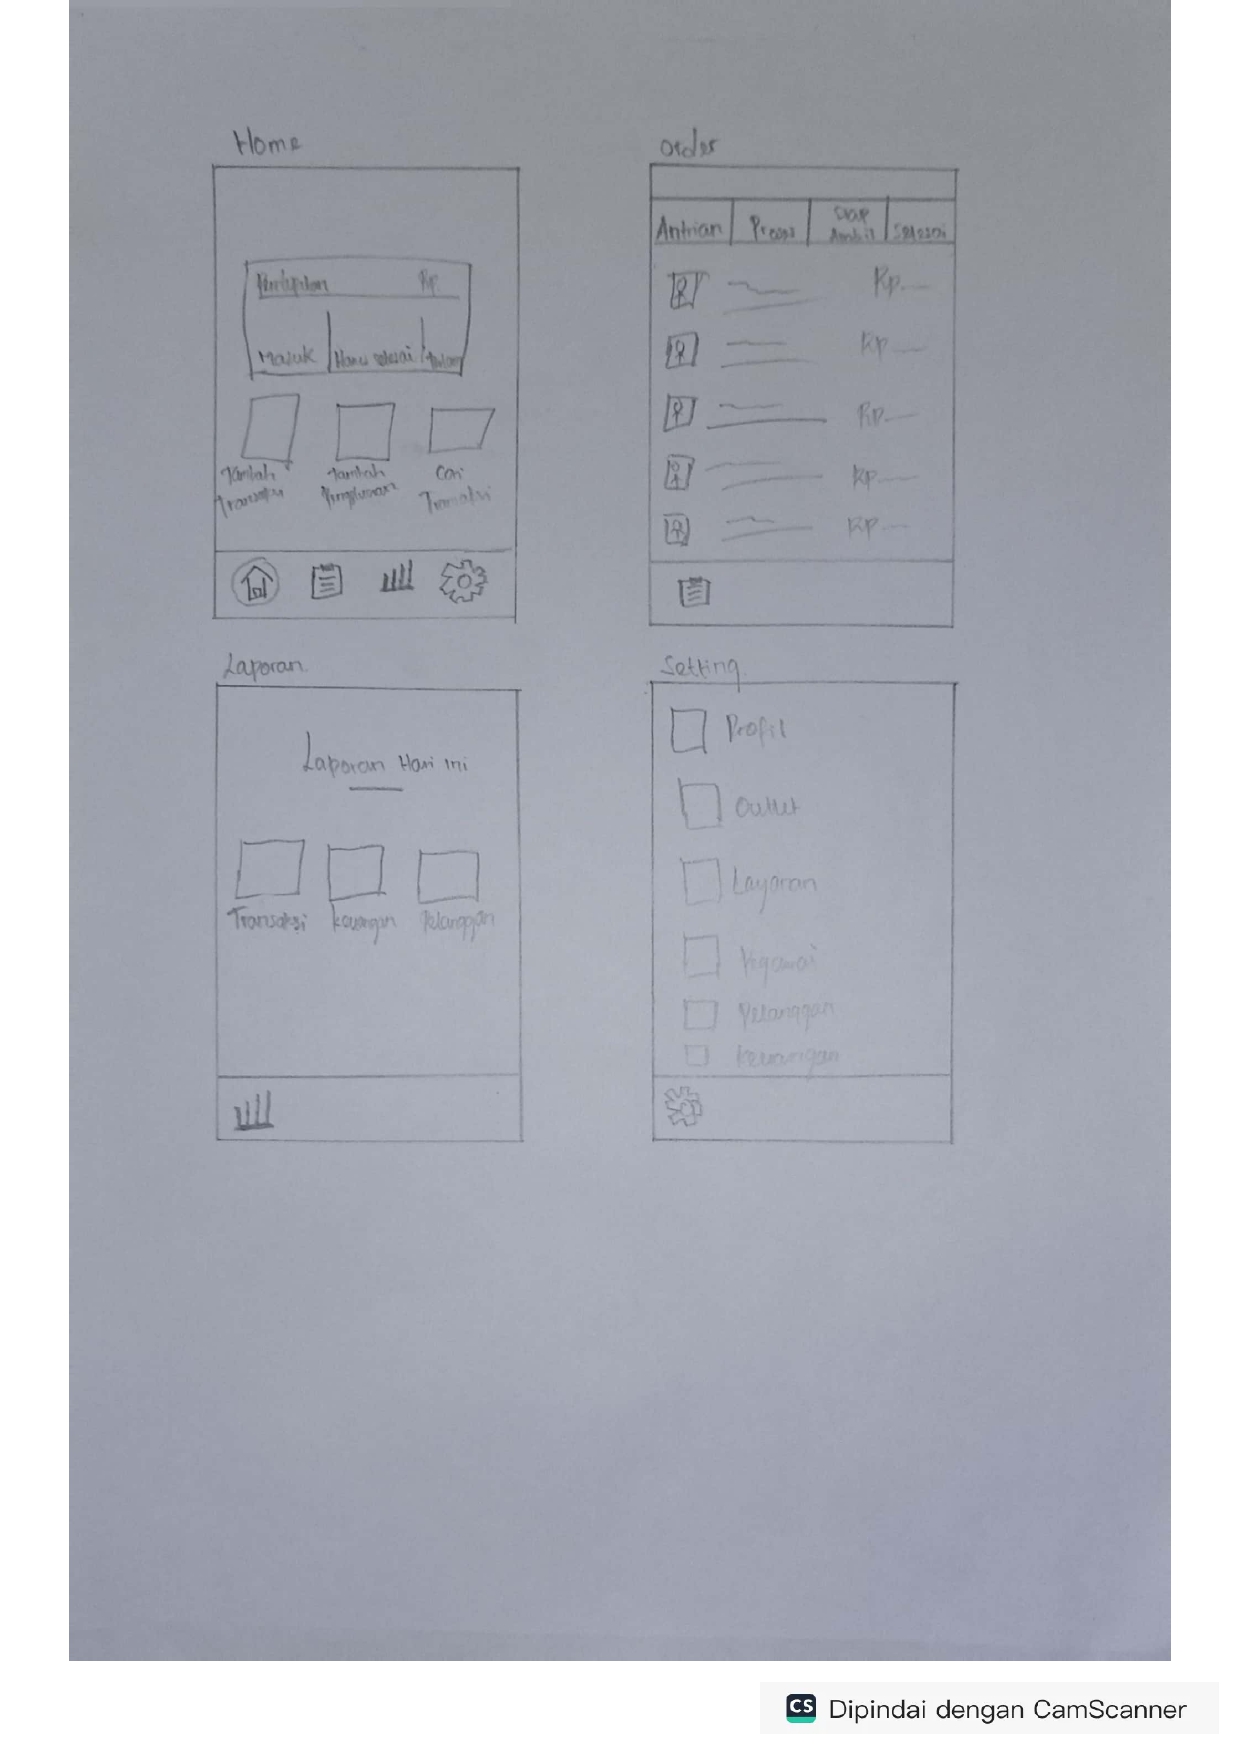 Home
Rp
Masuk
Harus selesai
Tambah
Transaksi
Tambah
Cari
Transaksi
Order
Antrian
Proses
Siap
Ambil
Selesai
Rp
Rp
Rp
Rp
Rp
Laporan
Laporan Hari ini
Transaksi
keuangan
Pelanggan
Setting
Profil
Outlet
Layanan
Pegawai
Pelanggan
keuangan
CS Dipindai dengan CamScanner